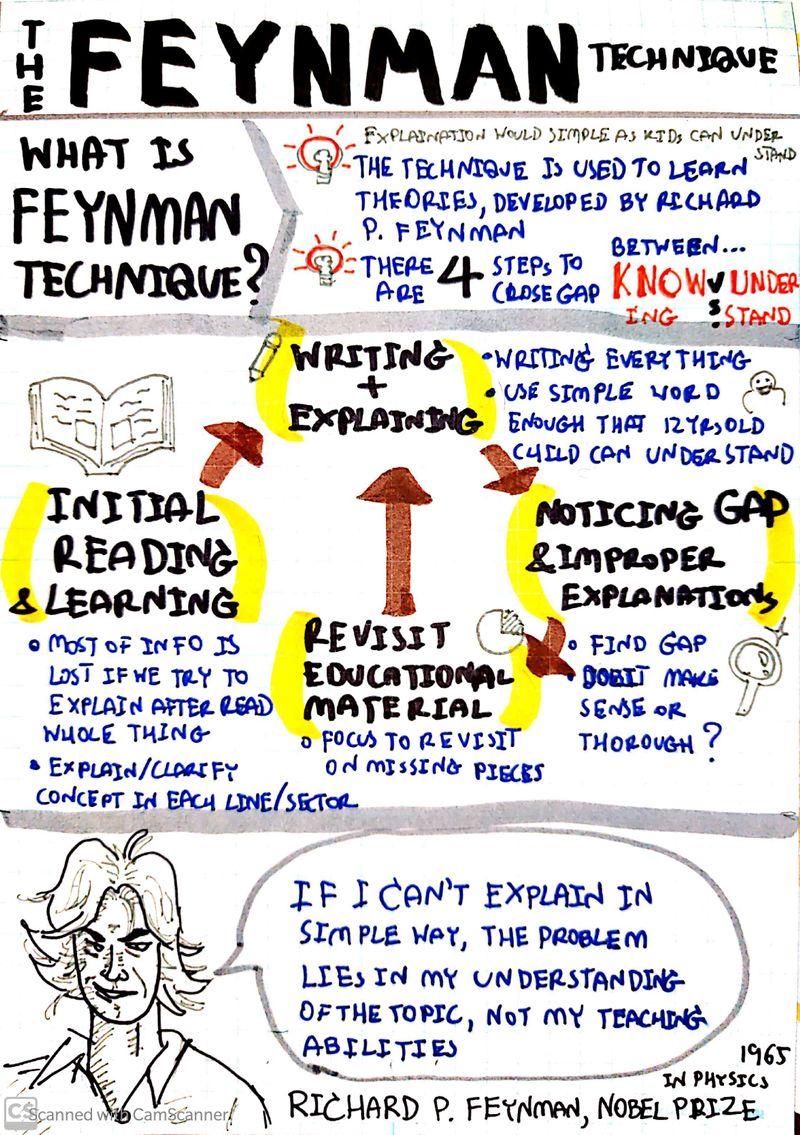 THE FEYNMAN TECHNIQUE
WHAT IS
FEYNMAN
TECHNIQUE?
EXPLAINATION WOULD SIMPLE AS KIDS CAN UNDER
STAND
THE TECHNIQUE IS USED TO LEARN
THEORIES, DEVELOPED BY RICHARD
P. FEYNMAN
THERE ARE 4 STEPS TO CLOSE GAP
BETWEEN...
KNOWING VS. UNDERSTAND
WRITING
+
EXPLAINING
• WRITING EVERYTHING
• USE SIMPLE WORD
ENOUGH THAT 12 YRS OLD
CHILD CAN UNDERSTAND
INITIAL
READING
& LEARNING
• MOST OF INFO IS
LOST IF WE TRY TO
EXPLAIN AFTER READ
WHOLE THING
• EXPLAIN/CLARIFY
CONCEPT IN EACH LINE/SECTOR
NOTICING GAP
& IMPROPER
EXPLANATIONS
• FIND GAP
• DOES IT MAKE
SENSE OR
THOROUGH?
REVISIT
EDUCATIONAL
MATERIAL
• FOCUS TO REVISIT
ON MISSING PIECES
IF I CAN'T EXPLAIN IN
SIMPLE WAY, THE PROBLEM
LIES IN MY UNDERSTANDING
OF THE TOPIC, NOT MY TEACHING
ABILITIES
1965
IN PHYSICS
RICHARD P. FEYNMAN, NOBEL PRIZE
CS Scanned with CamScanner